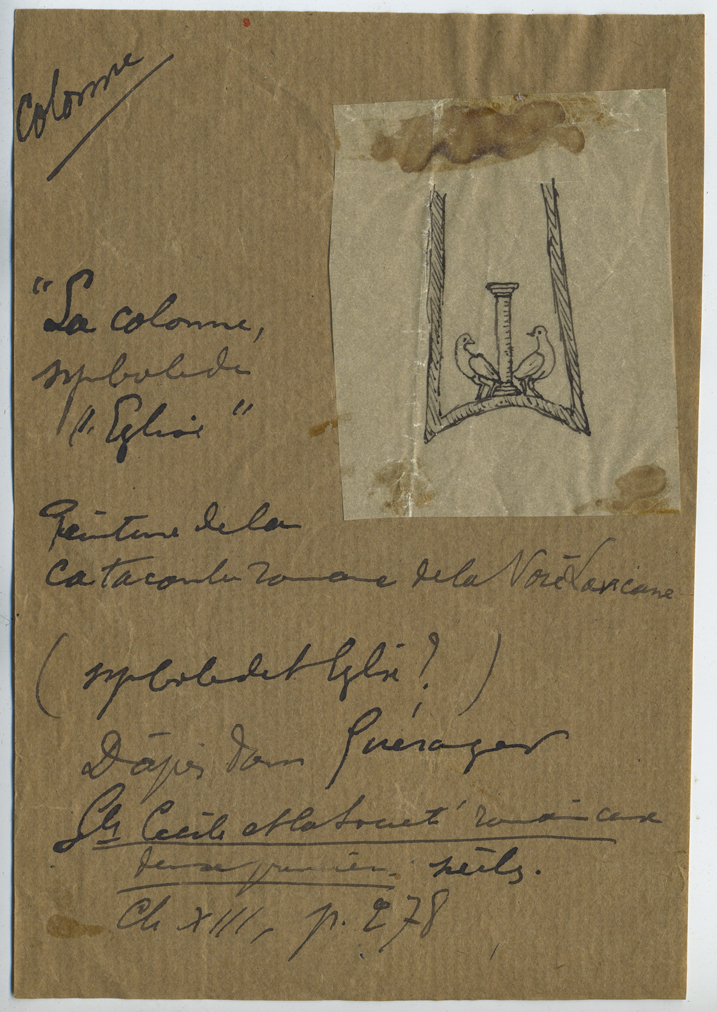 Colonne
"La colonne,
symbole de
l'Eglise"
Peinture de la
catacombe romaine de la Voie Lavicane
(symbole de l'Eglise?)
D'après dom Guéranger
Ste Cécile et la Société romaine aux
deux premiers siècles.
Ch XIII, p. 278